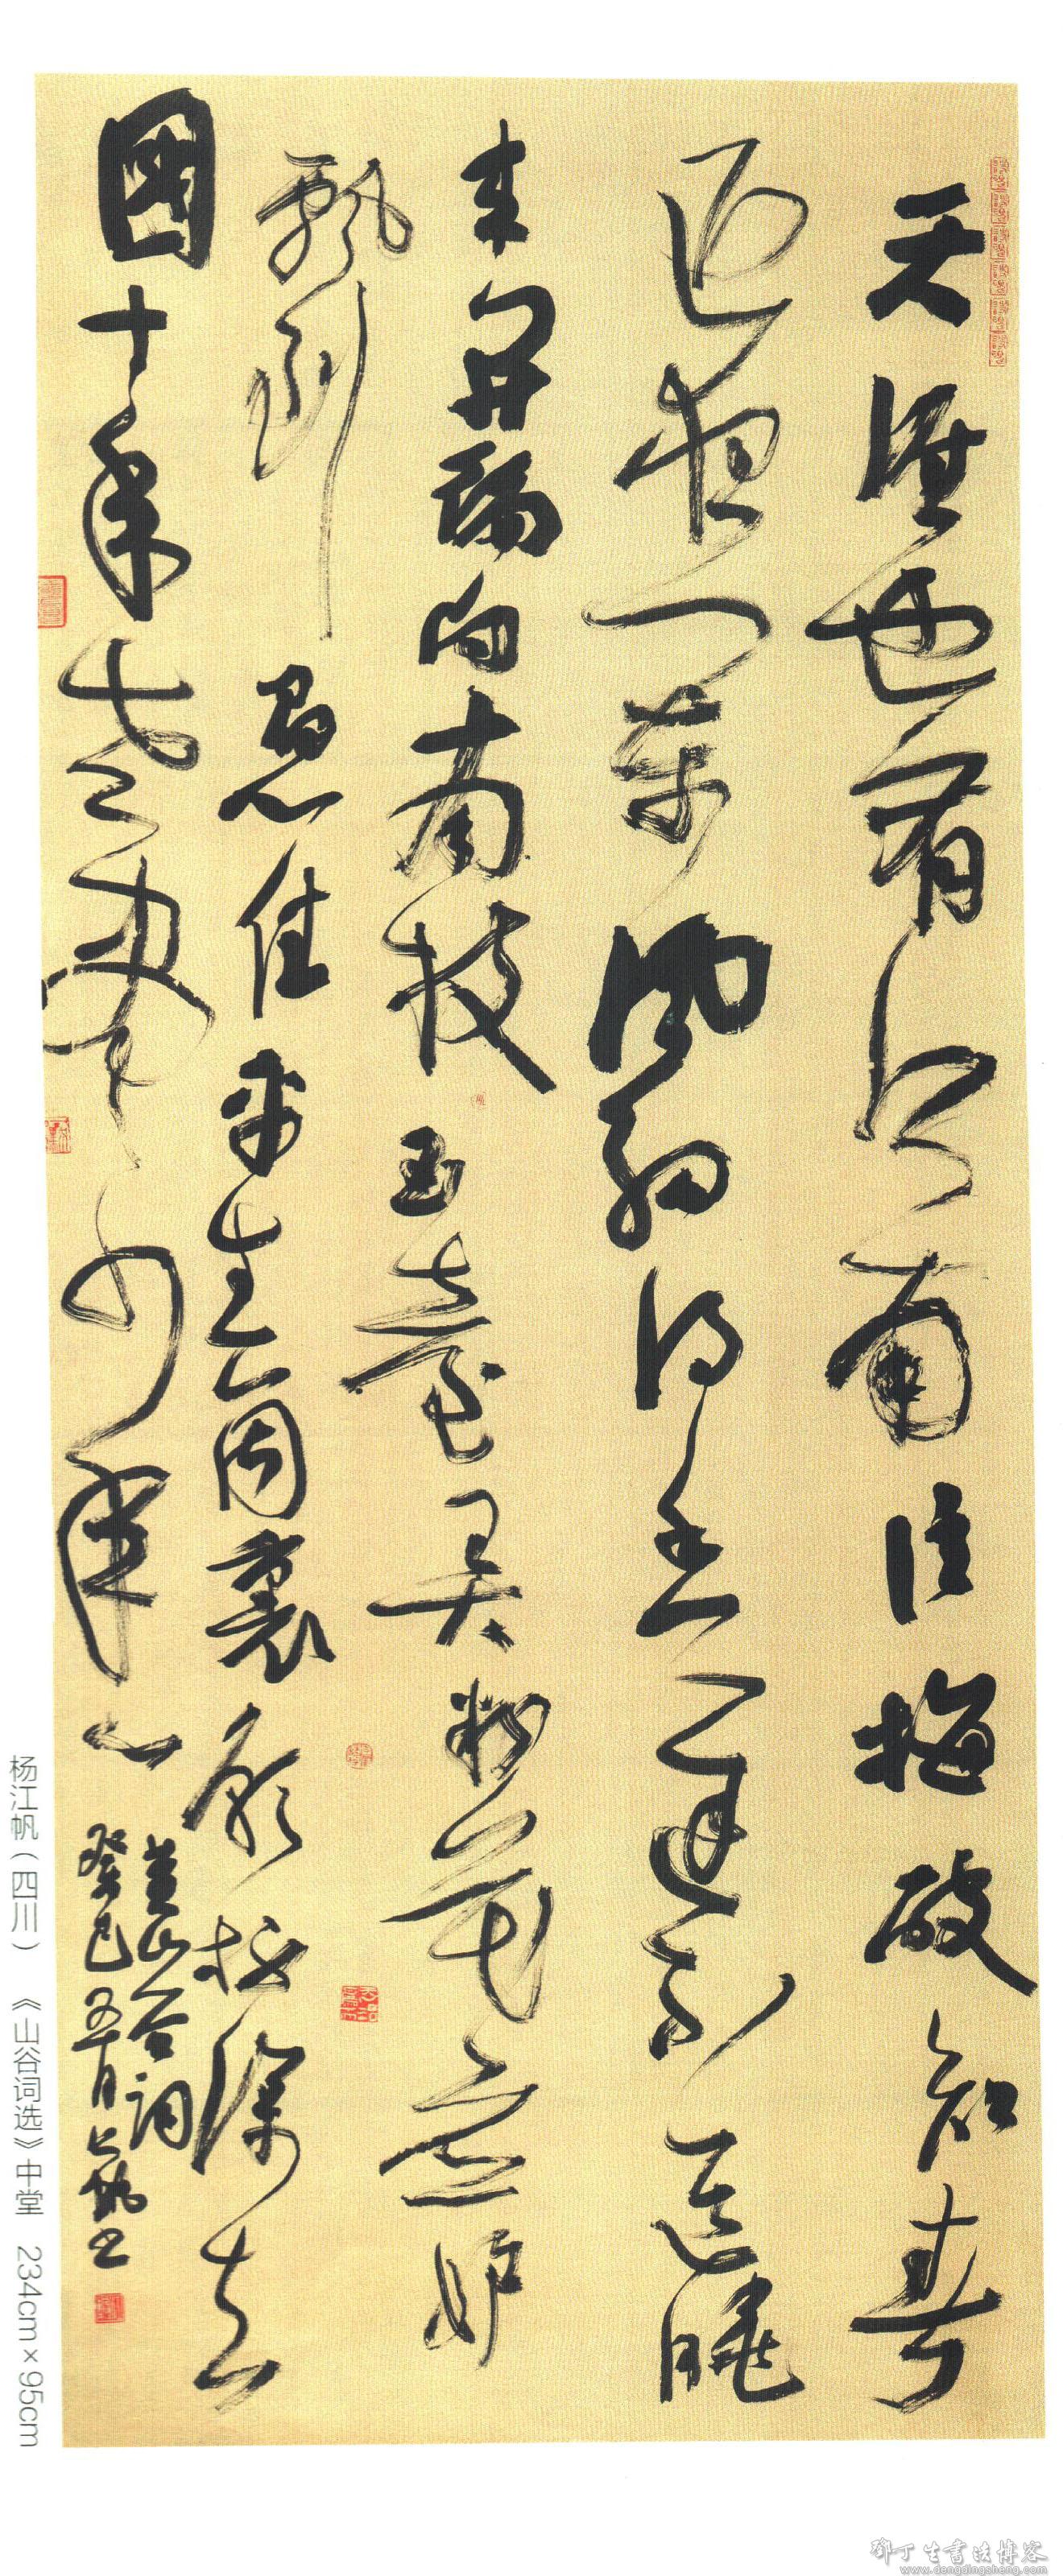 天涯也有江南信梅破知春
近夜闌風細得香遲不道曉
来開遍向南枝玉臺弄粉花應妒
飄到眉心住平生箇裏願杯深去
國十年老盡少年心
黄山谷詞
癸巳五月江帆书
杨江帆（四川） 《山谷词选》中堂 234cm×95cm
鄧丁生書法博客
www.dengdingsheng.com